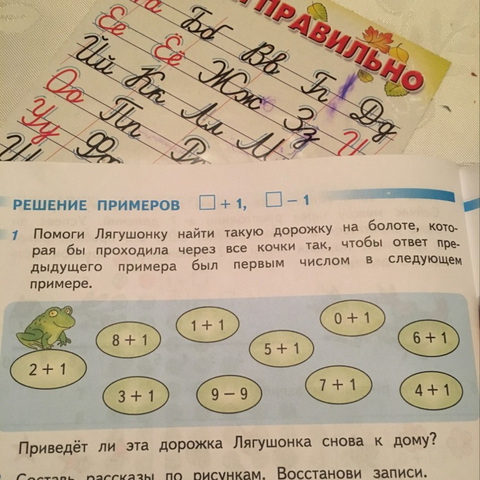 ПРАВИЛЬНО
Бб Вв Гг Дд
Ее Ёё Жж Зз
Йй Кк Лл М
Оо Пп Рр
Уу Фф
РЕШЕНИЕ ПРИМЕРОВ □ + 1, □ − 1
1 Помоги Лягушонку найти такую дорожку на болоте, кото-
рая бы проходила через все кочки так, чтобы ответ пре-
дыдущего примера был первым числом в следующем
примере.
2 + 1
8 + 1
1 + 1
5 + 1
0 + 1
6 + 1
3 + 1
9 − 9
7 + 1
4 + 1
Приведёт ли эта дорожка Лягушонка снова к дому?
Составь рассказы по рисункам. Восстанови записи.